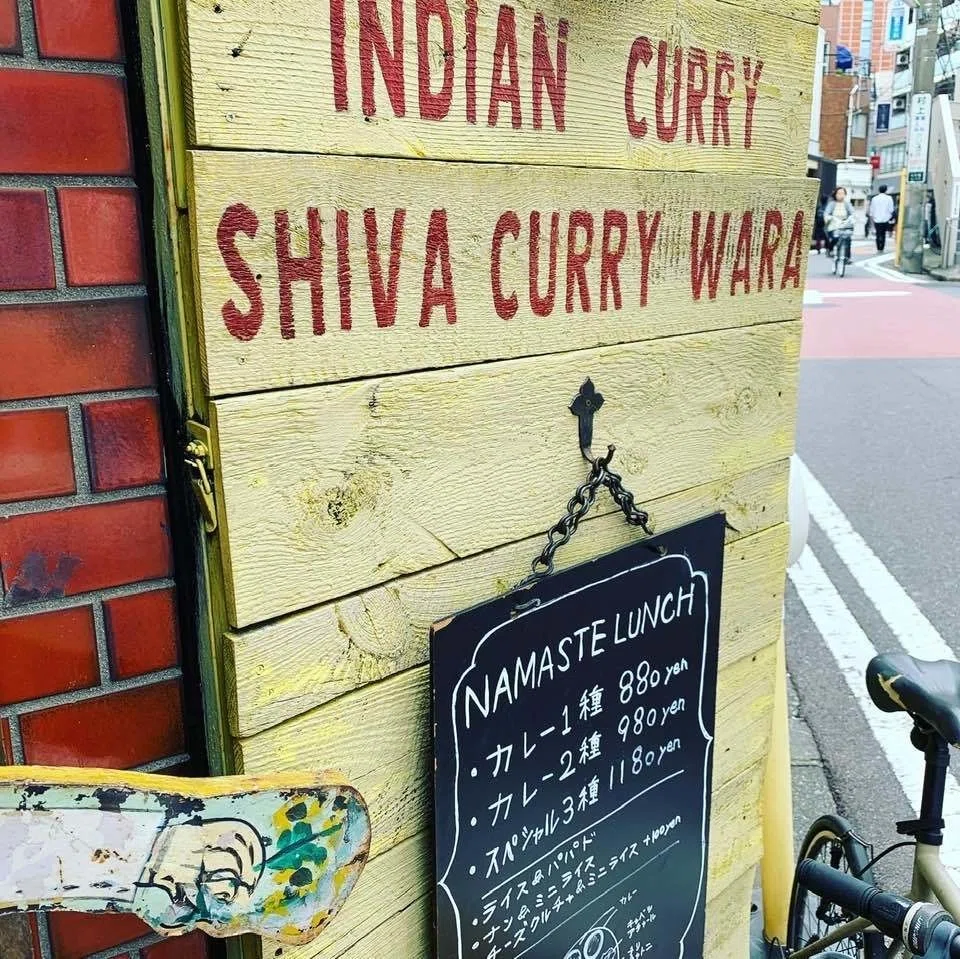 INDIAN CURRY
SHIVA CURRY WARA
NAMASTE LUNCH
・カレー1種 880 yen
・カレー2種 980 yen
・スペシャル3種 1180 yen
・ライス&パパド
・ナン&ミニライス
・チーズクルチャ&ミニライス +100yen
カレー